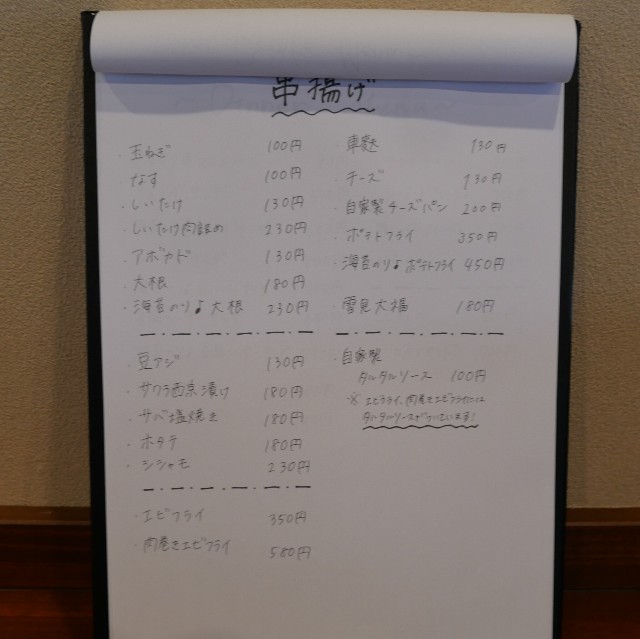 串揚げ
・玉ねぎ 100円
・なす 100円
・しいたけ 130円
・しいたけ肉詰め 230円
・アボカド 130円
・大根 180円
・海苔のりよ大根 230円
・豆アジ 130円
・サワラ西京漬け 180円
・サバ塩焼き 180円
・ホタテ 180円
・シシャモ 230円
・エビフライ 350円
・肉巻きエビフライ 580円
・車麩 130円
・チーズ 130円
・自家製チーズパン 200円
・ポテトフライ 350円
・海苔のりよポテトフライ 450円
・雪見大福 180円
・自家製
タルタルソース 100円
※エビフライ、肉巻きエビフライには
タルタルソースがついています!